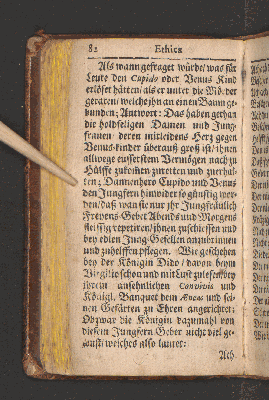 82 Ethica
Als wann gefraget würde/ was für
Leute den Cupido oder Venus Kind
erlöset hätten/ als er unter die Mörder
geraten/ welche ihn an einen Baum ge-
bunden; Antwort: Das haben gethan
die holdseligen Damen und Jung-
frauen deren mitleidens Hertz gegen
Venus-kinder überauß groß ist/ ihnen
allwege eusserstem Vermögen nach zu
Hülffe zukommen zuretten und zuerhal-
ten; Dannenhero Cupido und Venus
den Jungfern hinwider so günstig wor-
den/ daß wan sie nur ihr Jungfräulich
Frevens-Gebet Abends und Morgens
fleissig repetiren/ ihnen zuschiessen und
bey edlen Jung-Gesellen anzubringen
und zuhelffen pflegen. Wie geschehen
bey der Königin Dido/ davon beym
Virgilio schon und mit Lust zulesen/ bey
ihrem ansehnlichen Convivio und
Königl. Banquet dem Æneæ und sei-
nen Gefärten zu Ehren angerichtet;
Obzwar die Königin dazumahl von
diesem Jungfern Gebet nicht viel ge-
wust/ welches also lautet:
Ach